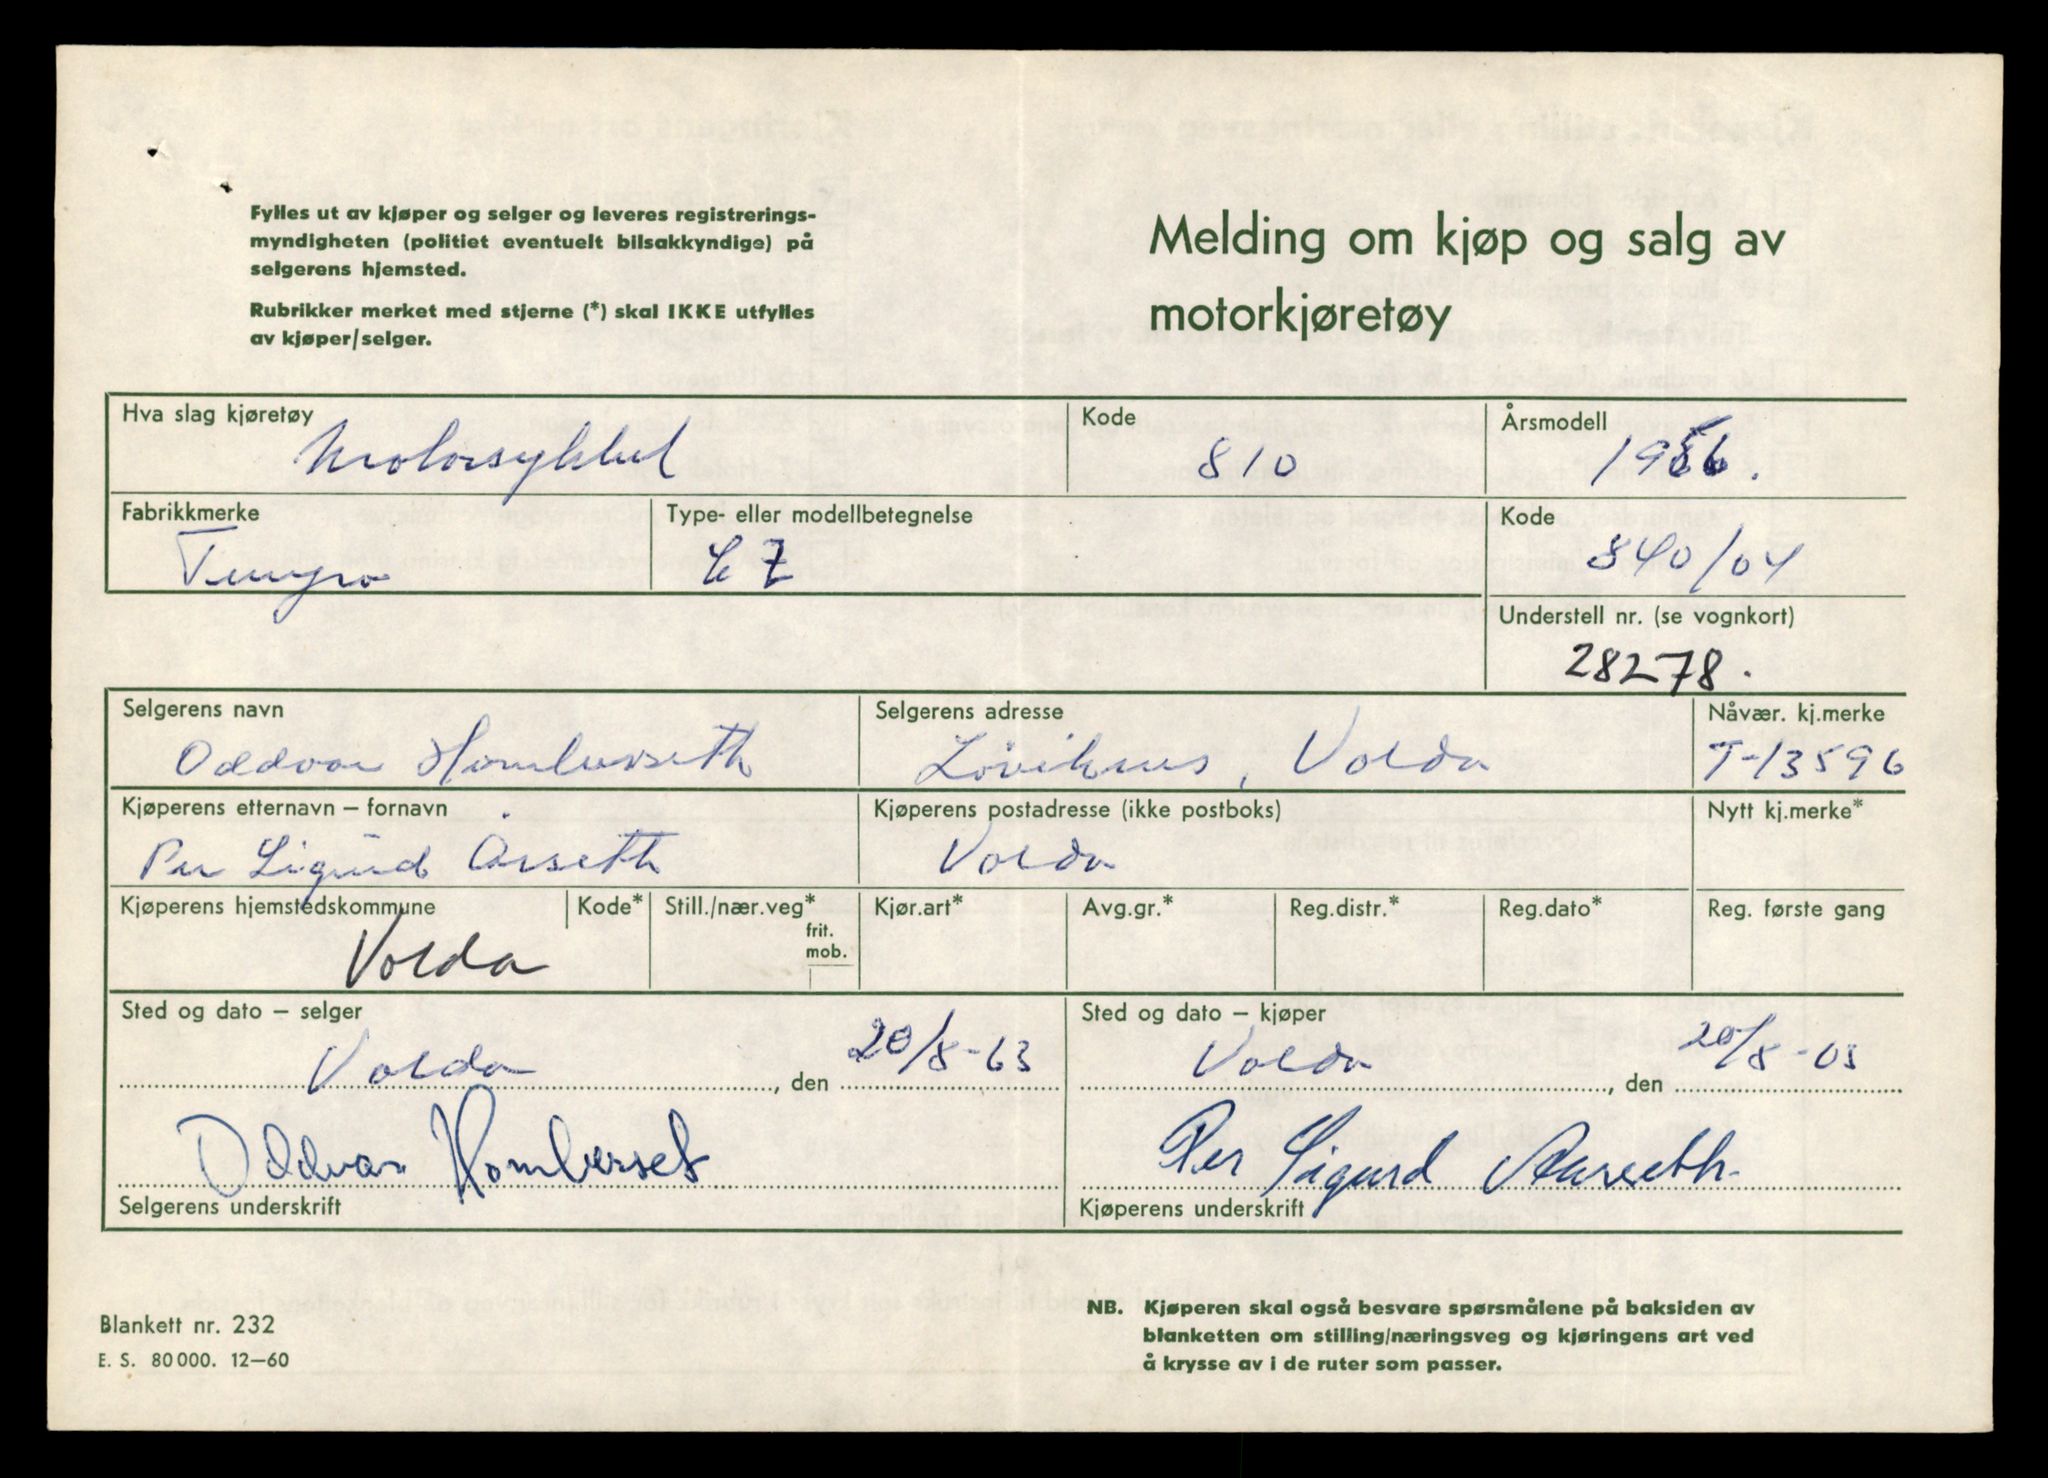 Fylles ut av kjøper og selger og leveres registrerings-
myndigheten (politiet eventuelt bilsakkyndige) på
selgerens hjemsted.
Rubrikker merket med stjerne (*) skal IKKE utfylles
av kjøper/selger.
Melding om kjøp og salg av
motorkjøretøy
Hva slag kjøretøy Kode Årsmodell
Motorsykkel 810 1956.
Fabrikkmerke Type- eller modellbetegnelse Kode
Tempo 840/04
Understell nr. (se vognkort)
28278.
Selgerens navn Selgerens adresse Nåvær. kj.merke
Oddvar Homberseth Løviknes, Volda T-13596
Kjøperens etternavn – fornavn Kjøperens postadresse (ikke postboks) Nytt kj.merke*
Per Sigurd Årseth Volda
Kjøperens hjemstedskommune Kode* Still./nær.veg* frit. mob. Kjør.art* Avg.gr.* Reg.distr.* Reg.dato* Reg. første gang
Volda
Sted og dato – selger Sted og dato – kjøper
Volda, den 20/8-63 Volda, den 20/8-63
Oddvar Homberset Per Sigurd Aarseth
Selgerens underskrift Kjøperens underskrift
Blankett nr. 232
E. S. 80 000. 12–60
NB. Kjøperen skal også besvare spørsmålene på baksiden av
blanketten om stilling/næringsveg og kjøringens art ved
å krysse av i de ruter som passer.